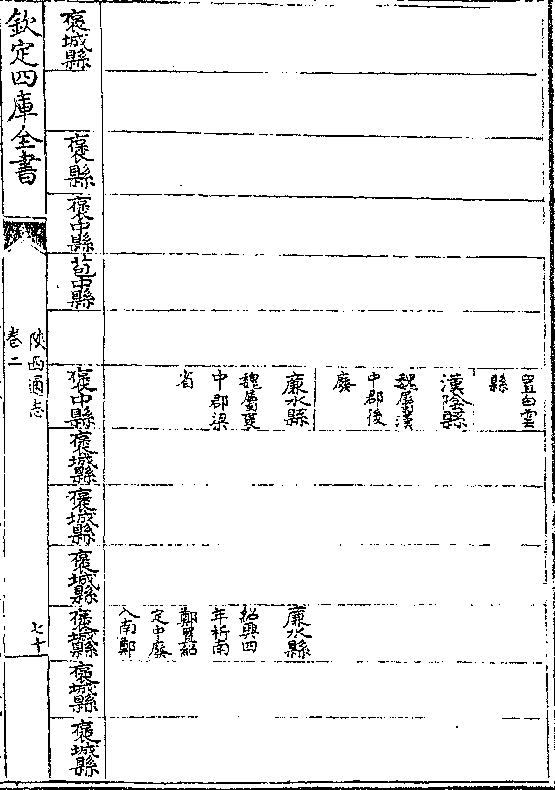 置白雲
縣
漢陰縣
魏屬漢
中郡後
廢
廉水縣
魏屬褒
中郡梁
省
廉水縣
紹興四
年析南
鄭置紹
定中廢
入南鄭
褒城縣
褒縣
褒中縣
苞中縣
褒中縣
褒城縣
褒城縣
褒城縣
褒城縣
褒城縣
褒城縣
欽定四庫全書
陝西通志
卷二
七十